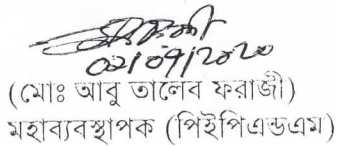 02/09/2020
(মোঃ আবু তালেব ফরাজী)
মহাব্যবস্থাপক (পিইপিএন্ডএম)